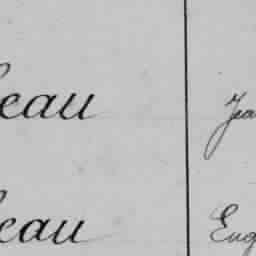 eau Jea
eau Eug